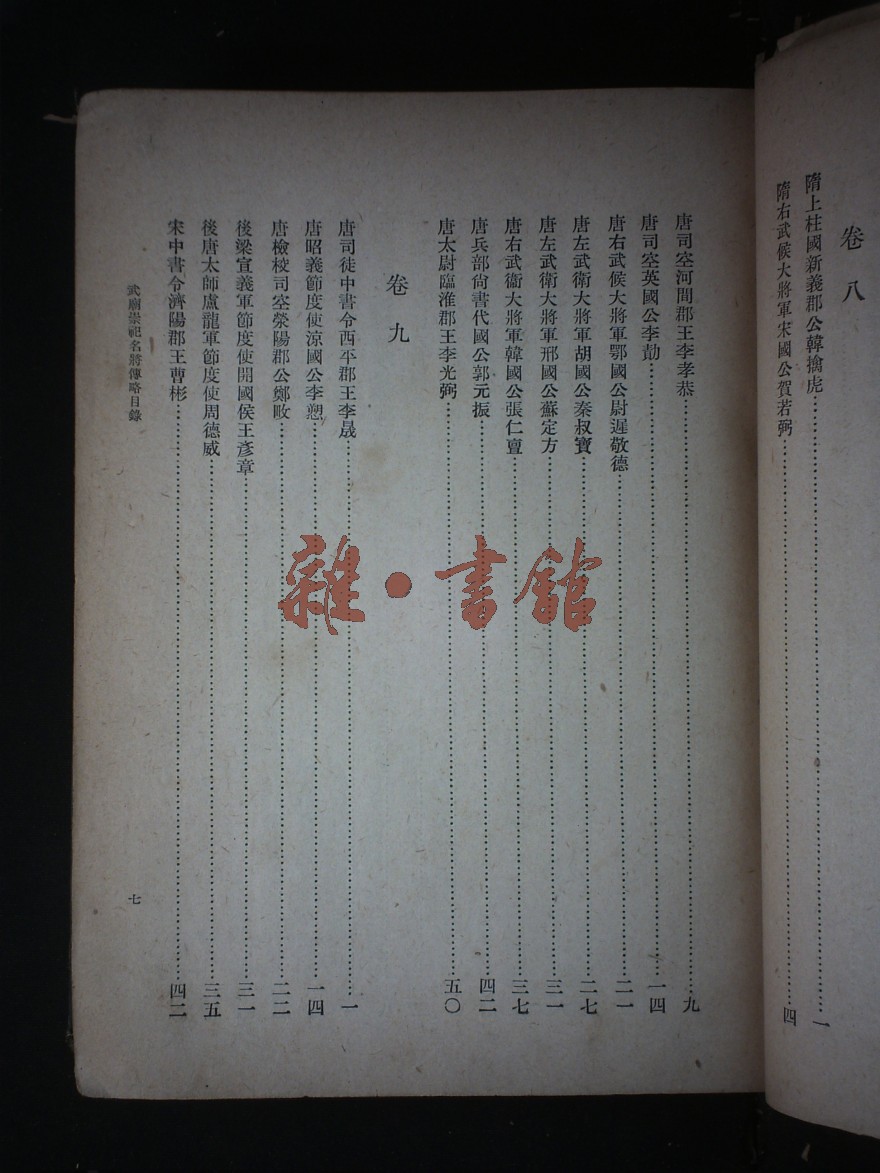 卷八
隋上柱國新義郡公韓擒虎……一
隋右武候大將軍宋國公賀若弼……四
唐司空河間郡王李孝恭……九
唐司空英國公李勣……一四
唐右武候大將軍鄂國公尉遲敬德……二一
唐左武衛大將軍胡國公秦叔寶……二七
唐左武衛大將軍邢國公蘇定方……三一
唐右武衞大將軍韓國公張仁亶……三七
唐兵部尙書代國公郭元振……四二
唐太尉臨淮郡王李光弼……五〇
卷九
唐司徒中書令西平郡王李晟……一
唐昭義節度使涼國公李愬……一四
唐檢校司空滎陽郡公鄭畋……二二
後梁宣義軍節度使開國侯王彥章……三一
後唐太師盧龍軍節度使周德威……三五
宋中書令濟陽郡王曹彬……四二
武廟崇祀名將傳略目錄
七
雜·書館